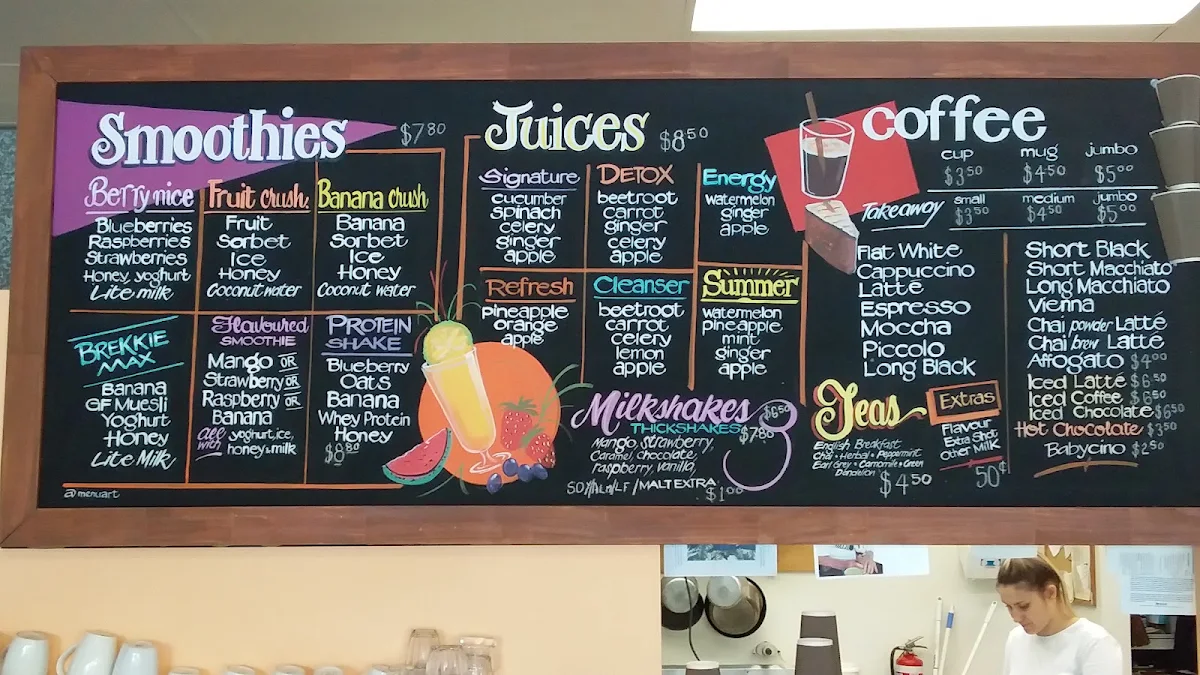 Smoothies $7.80
Berry nice
Blueberries
Raspberries
Strawberries
Honey, yoghurt
Lite milk
Fruit crush.
Fruit
Sorbet
Ice
Honey
Coconut water
Banana crush
Banana
Sorbet
Ice
Honey
Coconut water
BREKKIE
MAX
Banana
GF Muesli
Yoghurt
Honey
Lite Milk
Flavoured
SMOOTHIE
Mango OR
Strawberry OR
Raspberry OR
Banana
all with yoghurt, ice,
honey & milk
PROTEIN
SHAKE
Blueberry
Oats
Banana
Whey Protein
Honey
$8.80
@menuart
Juices $8.50
Signature
cucumber
spinach
celery
ginger
apple
DETOX
beetroot
carrot
ginger
celery
apple
Energy
watermelon
ginger
apple
Refresh
pineapple
orange
apple
Cleanser
beetroot
carrot
celery
lemon
apple
Summer
watermelon
pineapple
mint
ginger
apple
Milkshakes $6.50
THICKSHAKES $7.80
Mango, strawberry,
Caramel, chocolate,
raspberry, vanilla,
/MALT EXTRA
$1.00
Coffee
cup mug jumbo
$3.50 $4.50 $5.00
Takeaway small medium jumbo
$3.50 $4.50 $5.00
Flat White
Cappuccino
Latté
Espresso
Moccha
Piccolo
Long Black
Short Black
Short Macchiato
Long Macchiato
Vienna
Chai powder Latté
Chai brew Latté
Affogato $4.00
Iced Latté $6.50
Iced Coffee $6.50
Iced Chocolate $6.50
Hot Chocolate $3.50
Babycino $2.50
Teas
English Breakfast
Chai • Herbal • Peppermint
Earl Grey • Camomile • Green
Dandelion
$4.50
Extras
Flavour
Extra Shot
Other Milk
50¢